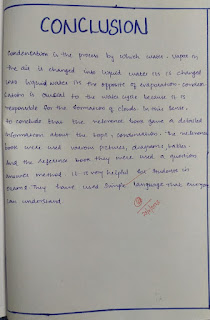 CONCLUSION
Condensation is the process by which water vapor in
the air is changed into liquid water its is changed
into liquid water its the opposite of evaporation. Conden-
sation is crucial to the water cycle because it is
responsible for the formation of clouds. In this sense.
To conclude that the reference book gave a detailed
information about the topic, condensation. The reference
book were used various pictures, diagrams, tables.
And the reference book they were used a question
answer method it is very helpful for students in
exams. They have used simple language that everyone
can understand